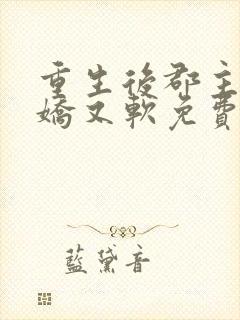 重生後郡主
嬌又軟免費
藍黛音